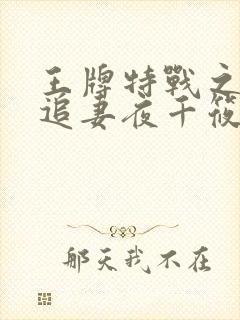 王牌特戰之
追妻夜千筱
那天我不在